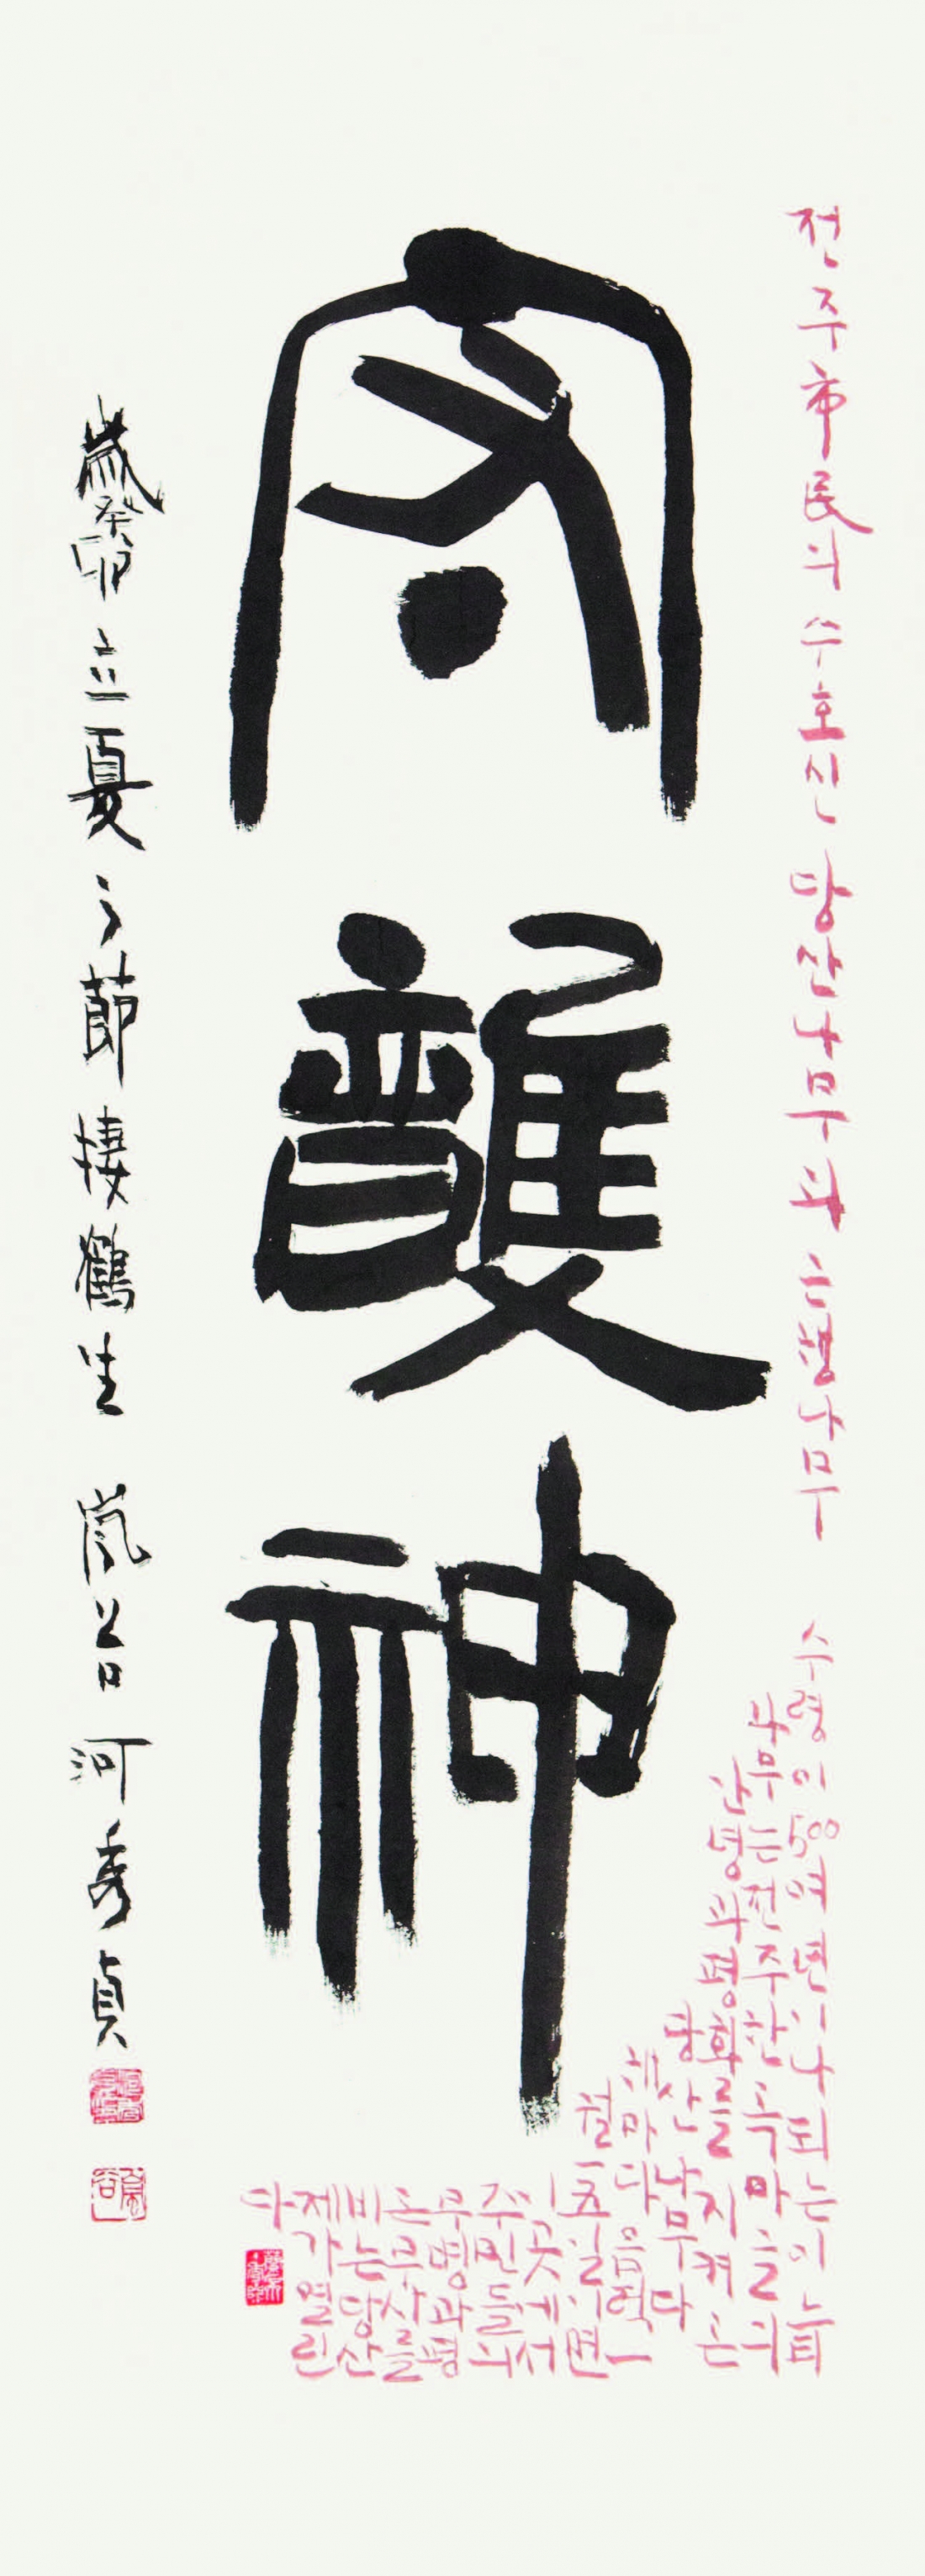 전주市民의 수호신 당산나무의 은행나무
수령이 500여 년이나 되는 이 느티
나무는 전주한옥마을의
안녕과 평화를 지켜온
당산나무다
해마다 음력 一
월 一五일이면
이곳에서
주민들의
무병과 평
온무사를
비는 당산
제가 열린
다
守護神
歲癸卯立夏之節棲鶴生 嵐谷 河秀貞